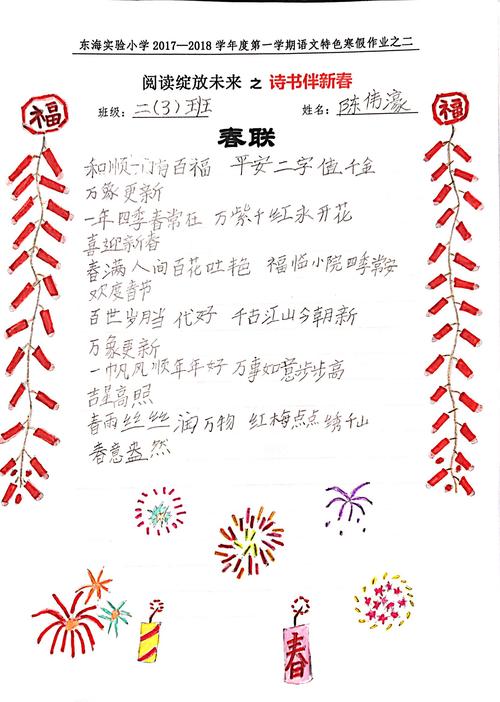 东海实验小学2017—2018学年度第一学期语文特色寒假作业之二
阅读绽放未来 之 诗书伴新春
班级：二(3)班 姓名：陈伟濠
福 福
春联
和顺一门有百福 平安二字值千金
万象更新
一年四季春常在 万紫千红永开花
喜迎新春
春满人间百花吐艳 福临小院四季常安
欢度春节
百世岁月当代好 千古江山今朝新
万象更新
一帆风顺年年好 万事如意步步高
吉星高照
春雨丝丝润万物 红梅点点绣千山
春意盎然
春